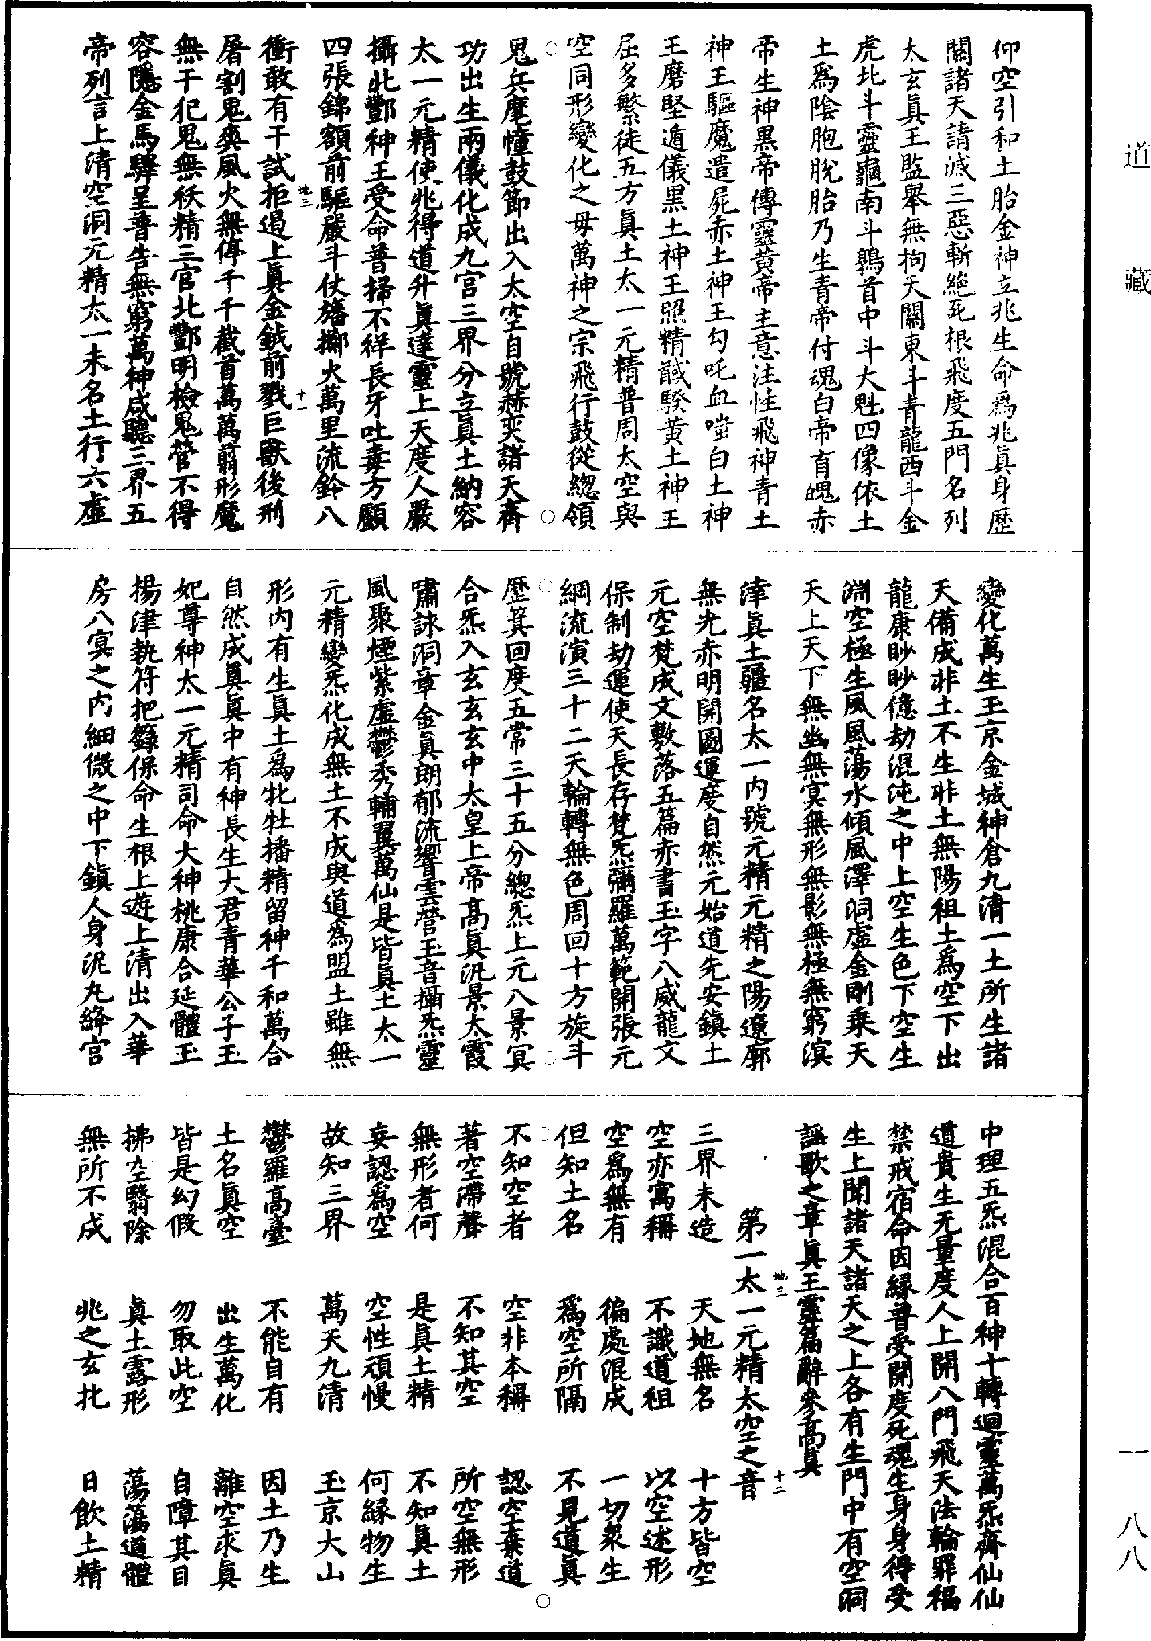 道藏
一八八
仰空引和土胎金神立兆生命為兆真身歷
關諸天請滅三惡斬絕死根飛度五門名列
太玄真王監舉無拘天關東斗青龍西斗金
虎北斗靈龜南斗鶉首中斗大魁四像依土
土為陰胞脫胎乃生青帝付魂白帝育魄赤
帝生神黑帝傳靈黃帝主意注性飛神青土
神王驅魔遣屍赤土神王勾吒血啗白土神
王磨堅遁儀黑土神王照精馘騤黃土神王
屈多繁徒五方真土太一元精普周太空與
空同形變化之母萬神之宗飛行鼓從總領
鬼兵麾幢鼓節出入太空自號赫奕諸天齊
功出生兩儀化成九宮三界分立真土納容
太一元精使兆得道升真達靈上天度人嚴
攝北酆神王受命普掃不祥長牙吐毒方顱
四張錦額前驅嚴斗仗旛擲火萬里流鈴八
衝敢有干試拒遏上真金鉞前戮巨獸後刑
屠割鬼爽風火無停千千截首萬萬剪形魔
無干犯鬼無袄精三官北酆明檢鬼營不得
容隱金馬驛呈普告無窮萬神咸聽三界五
帝列言上清空洞元精太一未名土行六虛
地三
十一
變化萬生玉京金城神倉九清一土所生諸
天備成非土不生非土無陽祖土為空下出
龍康眇眇億劫混沌之中上空生色下空生
淵空極生風風蕩水傾風澤洞虛金剛乘天
天上天下無幽無冥無形無影無極無窮溟
涬真土疆名太一內號元精元精之陽遼廓
無光赤明開圖運度自然元始道先安鎮土
元空梵成文敷落五篇赤書玉字八威龍文
保制劫運使天長存梵炁彌羅萬範開張元
綱流演三十二天輪轉無色周回十方旋斗
歷箕回度五常三十五分總炁上元八景冥
合炁入玄玄玄中太皇上帝高真汎景太霞
嘯詠洞章金真朗郁流響雲營玉音攝炁靈
風聚煙紫虛鬱秀輔翼萬仙是皆真土太一
元精變炁化成無土不成與道為盟土雖無
形內有生真土為牝牡播精留神千和萬合
自然成真真中有神長生大君青華公子玉
妃尊神太一元精司命大神桃康合延體玉
揚津執符把籙保命生根上遊上清出入華
房八冥之內細微之中下鎮人身泥丸絳宮
中理五炁混合百神十轉迴靈萬炁齊仙仙
道貴生无量度人上開八門飛天法輪罪福
禁戒宿命因緣普受開度死魂生身身得受
生上聞諸天諸天之上各有生門中有空洞
謡歌之章真王靈篇辭參高真
第一太一元精太空之音
地三
十二
三界未造 天地無名 十方皆空
空亦寓稱 不識道祖 以空述形
空為無有 徧處混成 一切眾生
但知土名 為空所隔 不見道真
不知空者 空非本稱 認空棄道
著空滯聲 不知其空 所空無形
無形者何 是真土精 不知真土
妄認為空 空性頑慢 何緣物生
故知三界 萬天九清 玉京大山
鬱羅高臺 不能自有 因土乃生
土名真空 出生萬化 離空求真
皆是幻假 勿取此空 自障其目
拂空翳除 真土露形 蕩蕩道體
無所不成 兆之玄牝 日飲土精